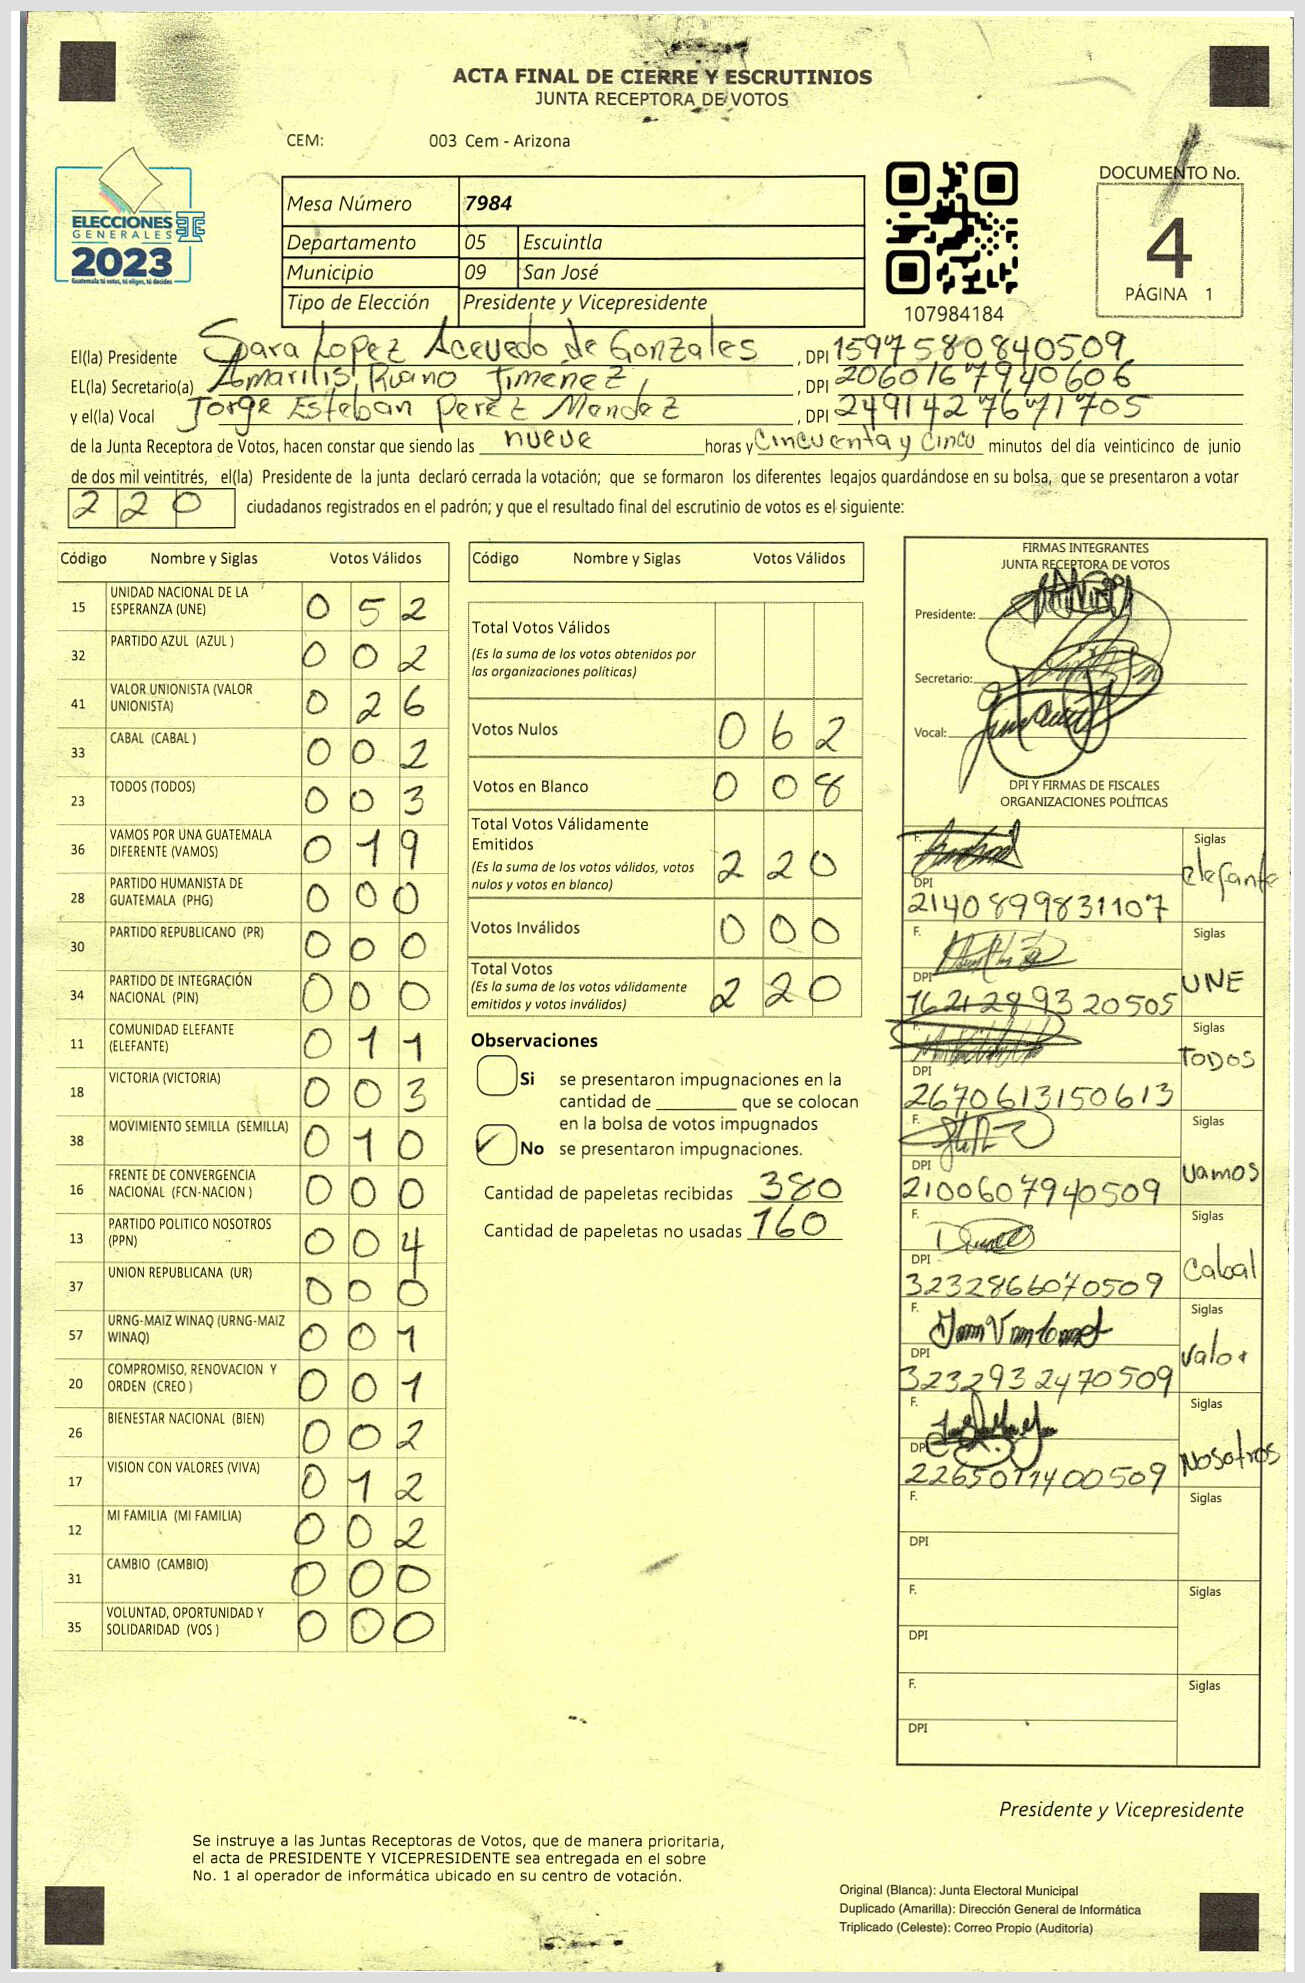 ACTA FINAL DE CIERRE Y ESCRUTINIOS
JUNTA RECEPTORA DE VOTOS
CEM: 003 Cem - Arizona
ELECCIONES
GENERALES
2023
Guatemala tú votas, tú eliges, tú decides
Mesa Número 7984
Departamento 05 Escuintla
Municipio 09 San José
Tipo de Elección Presidente y Vicepresidente
107984184
DOCUMENTO No.
4
PÁGINA 1
El(la) Presidente Sara Lopez Acevedo de Gonzales, DPI 1597580840509
EL(la) Secretario(a) Amarilis Ruano Jimenez, DPI 2060167940606
y el(la) Vocal Jorge Esteban Perez Mendez, DPI 2491427671705
de la Junta Receptora de Votos, hacen constar que siendo las nueve horas y cincuenta y cinco minutos del día veinticinco de junio
de dos mil veintitrés, el(la) Presidente de la junta declaró cerrada la votación; que se formaron los diferentes legajos guardándose en su bolsa, que se presentaron a votar
220 ciudadanos registrados en el padrón; y que el resultado final del escrutinio de votos es el siguiente:
Código Nombre y Siglas Votos Válidos
15 UNIDAD NACIONAL DE LA ESPERANZA (UNE) 0 5 2
32 PARTIDO AZUL (AZUL ) 0 0 2
41 VALOR UNIONISTA (VALOR UNIONISTA) 0 2 6
33 CABAL (CABAL ) 0 0 2
23 TODOS (TODOS) 0 0 3
36 VAMOS POR UNA GUATEMALA DIFERENTE (VAMOS) 0 1 9
28 PARTIDO HUMANISTA DE GUATEMALA (PHG) 0 0 0
30 PARTIDO REPUBLICANO (PR) 0 0 0
34 PARTIDO DE INTEGRACIÓN NACIONAL (PIN) 0 0 0
11 COMUNIDAD ELEFANTE (ELEFANTE) 0 1 1
18 VICTORIA (VICTORIA) 0 0 3
38 MOVIMIENTO SEMILLA (SEMILLA) 0 1 0
16 FRENTE DE CONVERGENCIA NACIONAL (FCN-NACION ) 0 0 0
13 PARTIDO POLITICO NOSOTROS (PPN) 0 0 4
37 UNION REPUBLICANA (UR) 0 0 0
57 URNG-MAIZ WINAQ (URNG-MAIZ WINAQ) 0 0 1
20 COMPROMISO, RENOVACION Y ORDEN (CREO ) 0 0 1
26 BIENESTAR NACIONAL (BIEN) 0 0 2
17 VISION CON VALORES (VIVA) 0 1 2
12 MI FAMILIA (MI FAMILIA) 0 0 2
31 CAMBIO (CAMBIO) 0 0 0
35 VOLUNTAD, OPORTUNIDAD Y SOLIDARIDAD (VOS ) 0 0 0
Código Nombre y Siglas Votos Válidos
Total Votos Válidos
(Es la suma de los votos obtenidos por
las organizaciones políticas)
Votos Nulos 0 6 2
Votos en Blanco 0 0 8
Total Votos Válidamente
Emitidos 2 2 0
(Es la suma de los votos válidos, votos
nulos y votos en blanco)
Votos Inválidos 0 0 0
Total Votos 2 2 0
(Es la suma de los votos válidamente
emitidos y votos inválidos)
Observaciones
Si se presentaron impugnaciones en la
cantidad de ________ que se colocan
en la bolsa de votos impugnados
No se presentaron impugnaciones.
Cantidad de papeletas recibidas 380
Cantidad de papeletas no usadas 160
FIRMAS INTEGRANTES
JUNTA RECEPTORA DE VOTOS
Presidente:
Secretario:
Vocal:
DPI Y FIRMAS DE FISCALES
ORGANIZACIONES POLÍTICAS
F. Siglas elefante
DPI 2140899831107
F. Siglas UNE
DPI 1621289320505
F. Siglas TODOS
DPI 2670613150613
F. Siglas vamos
DPI 2100607940509
F. Siglas Cabal
DPI 3232866070509
F. Siglas Valor
DPI 3232932470509
F. Siglas Nosotros
DPI 2265011400509
F. Siglas
DPI
F. Siglas
DPI
F. Siglas
DPI
Presidente y Vicepresidente
Se instruye a las Juntas Receptoras de Votos, que de manera prioritaria,
el acta de PRESIDENTE Y VICEPRESIDENTE sea entregada en el sobre
No. 1 al operador de informática ubicado en su centro de votación.
Original (Blanca): Junta Electoral Municipal
Duplicado (Amarilla): Dirección General de Informática
Triplicado (Celeste): Correo Propio (Auditoría)